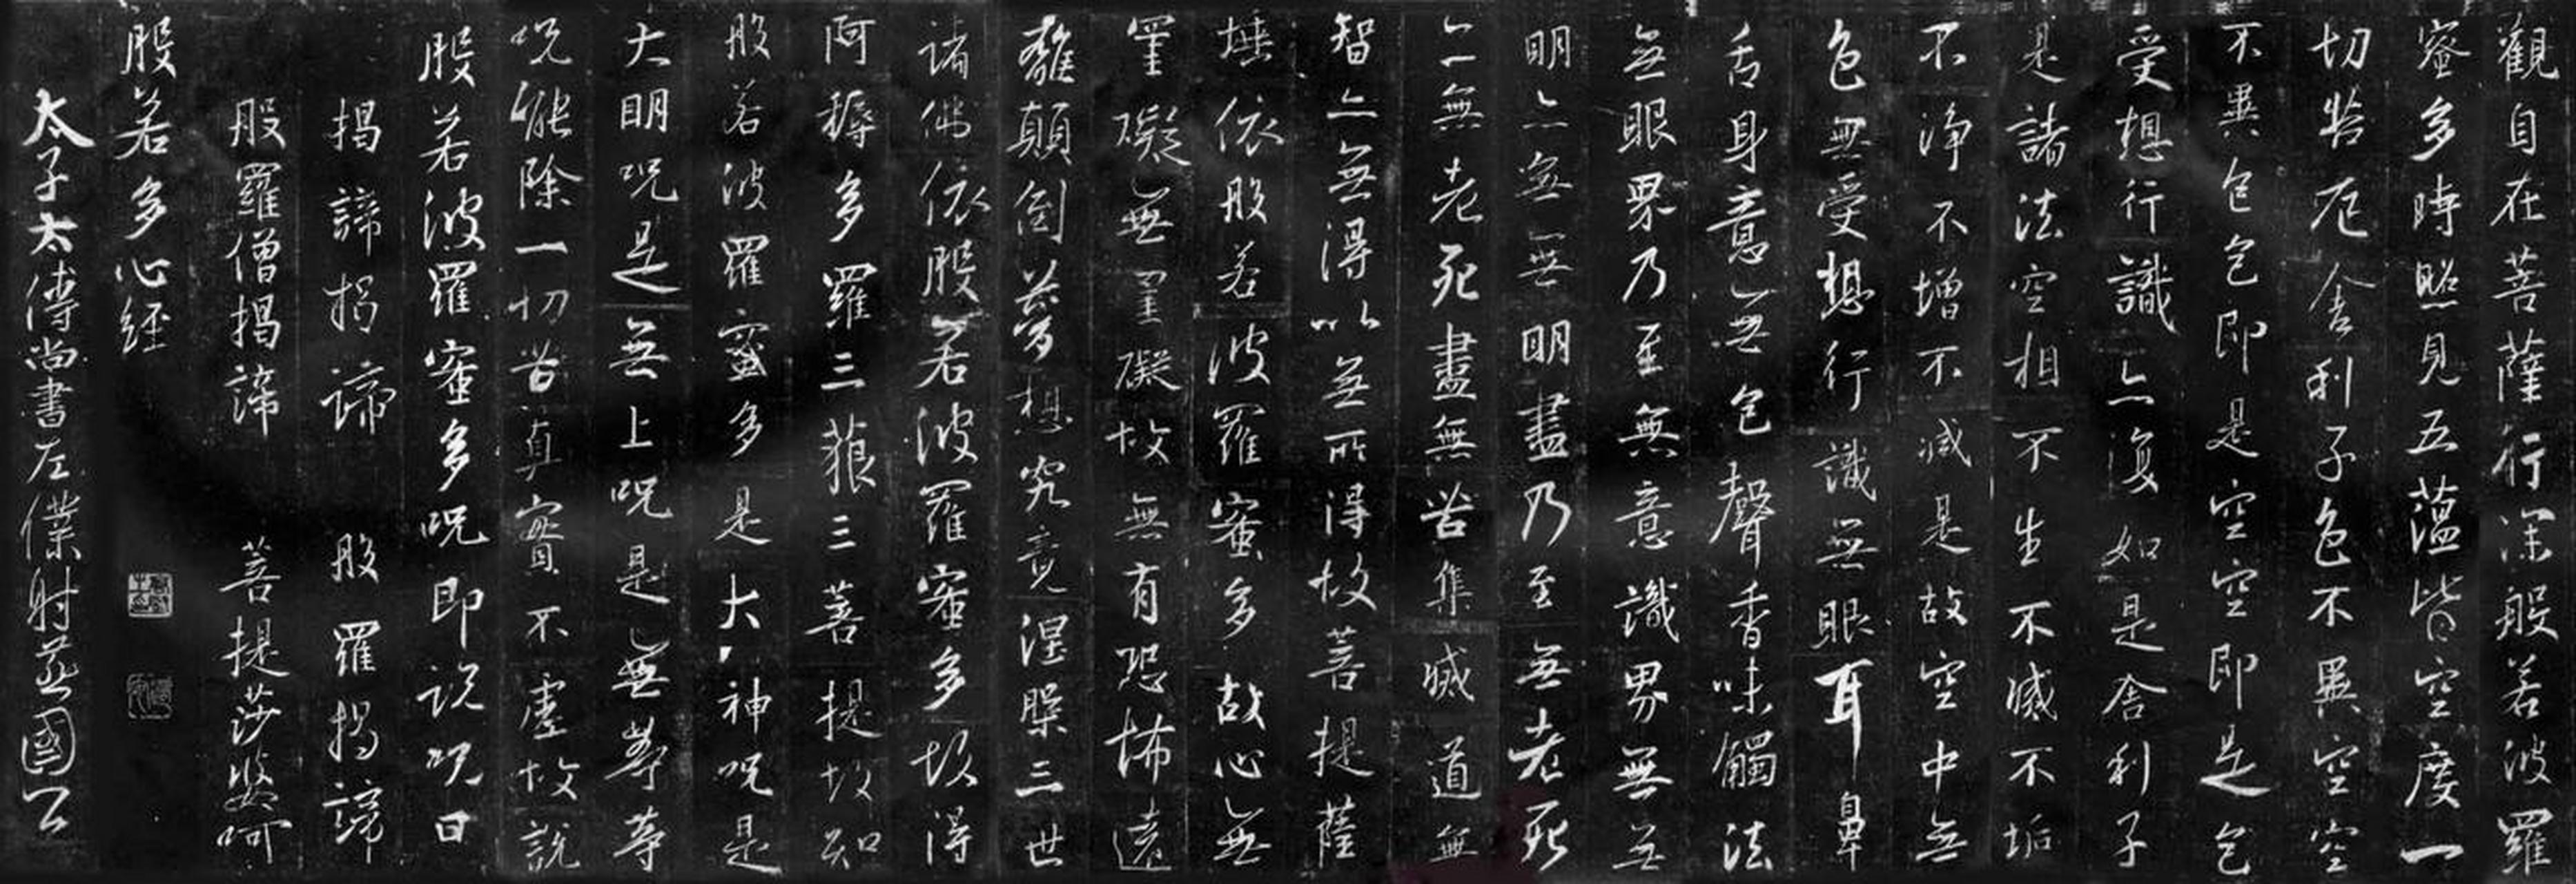 觀自在菩薩行深般若波羅
蜜多時照見五蘊皆空度一
切苦厄舍利子色不異空空
不異色色即是空空即是色
受想行識亦復如是舍利子
是諸法空相不生不滅不垢
不淨不增不減是故空中無
色無受想行識無眼耳鼻
舌身意無色聲香味觸法
無眼界乃至無意識界無無
明亦無無明盡乃至無老死
亦無老死盡無苦集滅道無
智亦無得以無所得故菩提薩
埵依般若波羅蜜多故心無
罣礙無罣礙故無有恐怖遠
離顛倒夢想究竟涅槃三世
諸佛依般若波羅蜜多故得
阿耨多羅三藐三菩提故知
般若波羅蜜多是大神呪是
大明呪是無上呪是無等等
呪能除一切苦真實不虛故說
般若波羅蜜多呪即說呪曰
揭諦揭諦 般羅揭諦
般羅僧揭諦 菩提莎婆呵
般若多心經
太子太傅尚書左僕射燕國公